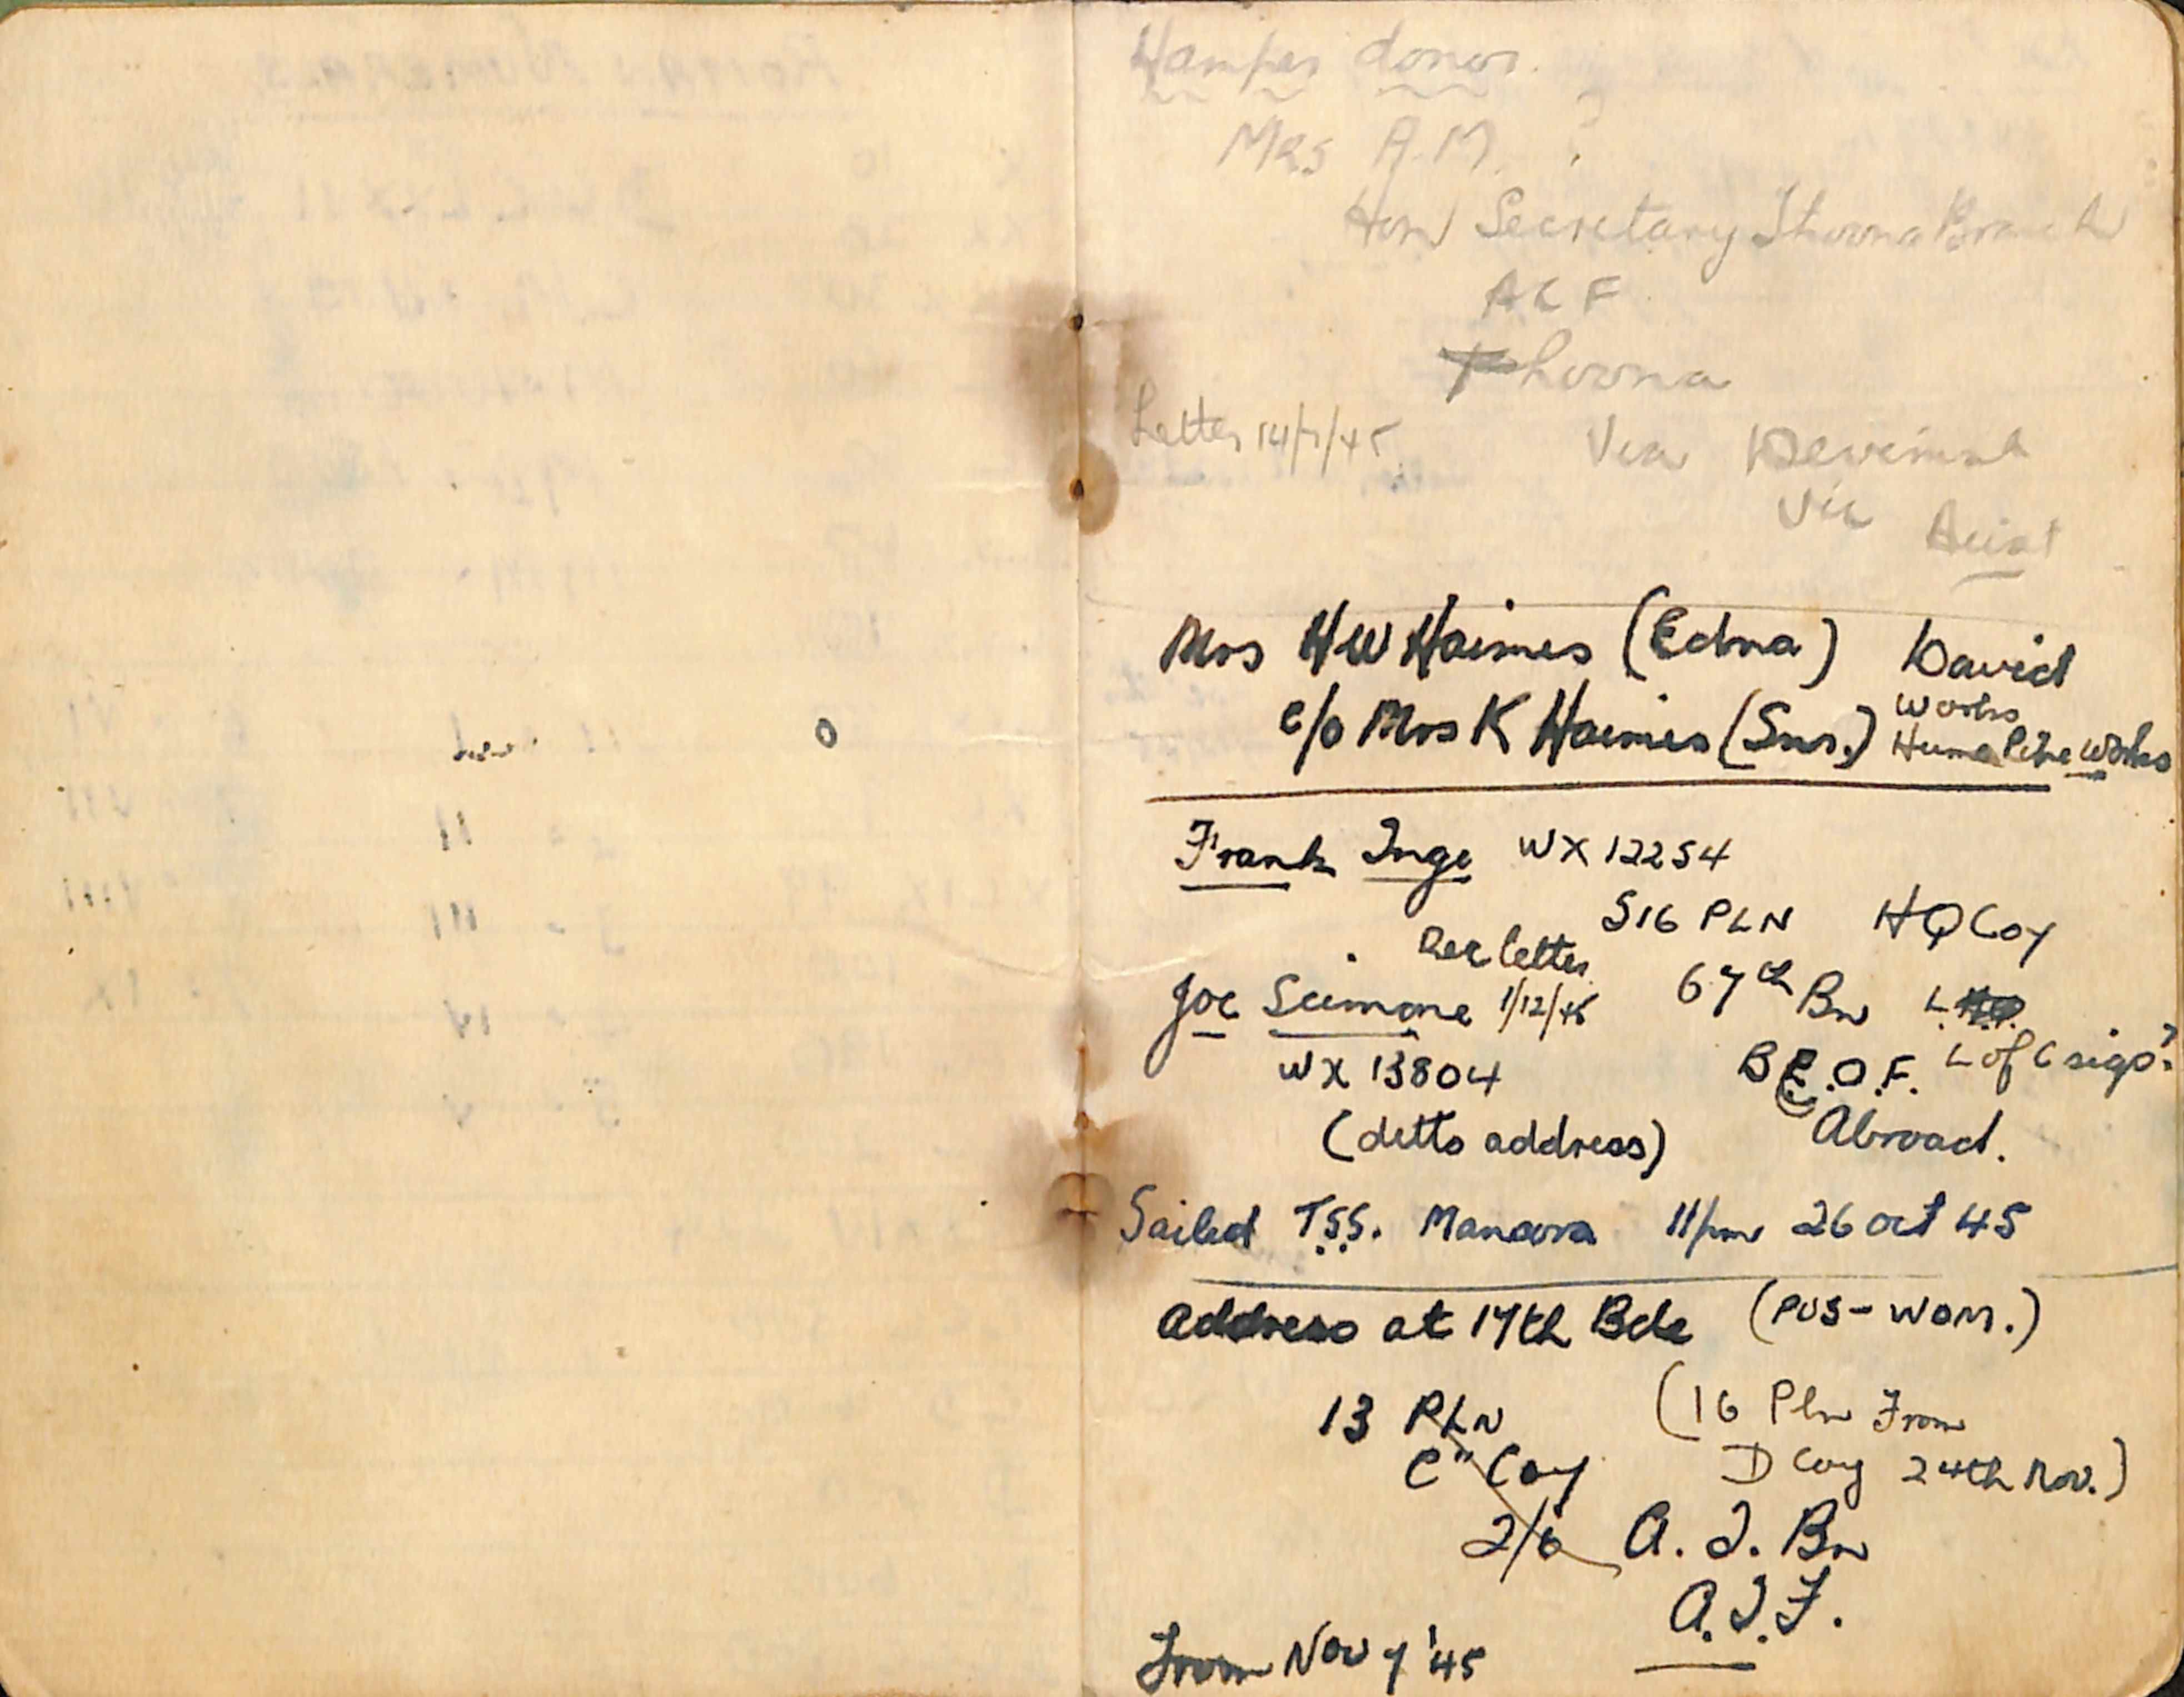 Hamper donor.
Mrs A.M. ?
Hon Secretary Thoona Branch
ACF
Thoona
Letter 14/7/45
Via Devenish
Vic
Aust
Mrs HW Haimes (Edna) David
c/o Mrs K Haimes (Snr.) works
Hume Pipe works
Frank Inge WX 12254
S16 PLN HQ Coy
Rec letter
Joe Scimone 1/12/45 67th Bn
WX 13804 B.C.O.F. L of C sigs?
(ditto address) Abroad.
Sailed T.S.S. Manoora 11pm 26 Oct 45
Address at 17th Bde (PUS-WOM.)
13 PLN (16 Pln From
C" Coy D Coy 24th Nov.)
2/6 A. I. Bn
A.I.F.
From Nov 7 '45